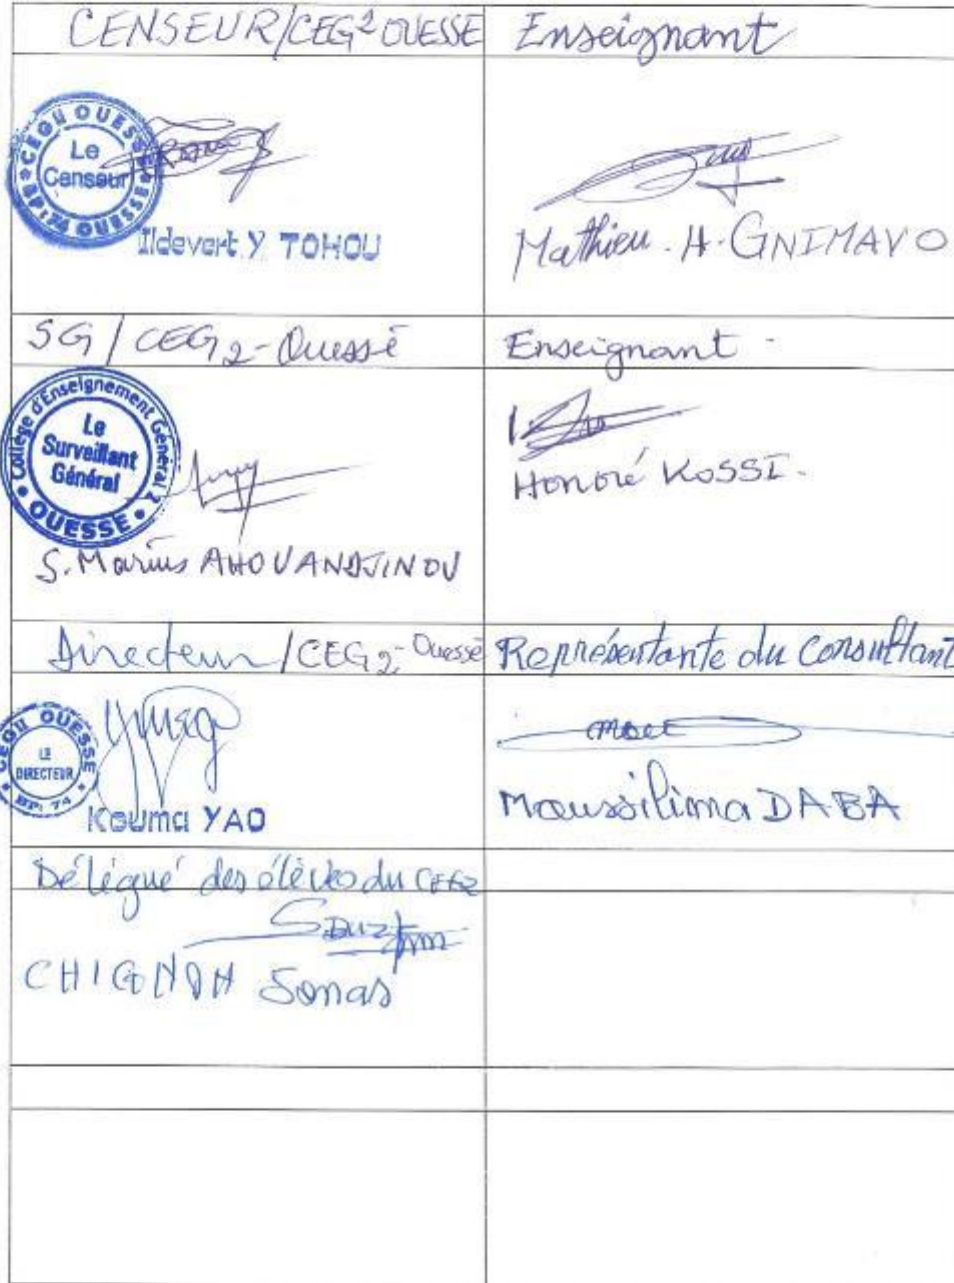 CENSEUR/CEG2 OUESSE
Enseignant
CEG II OUESSE
Le
Censeur
BP: 74 OUESSE
Ildevert Y TOHOU
Mathieu . H. GNIMAVO
SG / CEG2-Ouessè
Enseignant
Collège d'Enseignement Général 2
Le
Surveillant
Général
OUESSE
S. Marius AHOUANDJINOU
Honoré KOSSI.
Directeur / CEG2-Ouessè
Représentante du Consultant
CEG II OUESSE
LE
DIRECTEUR
BP: 74
Kouma YAO
Moussilima DABA
Délégué des élèves du CEG2